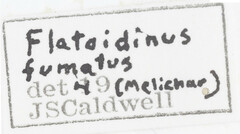 Flatoidinus
fumatus
det 19 (Melichar)
JSCaldwell